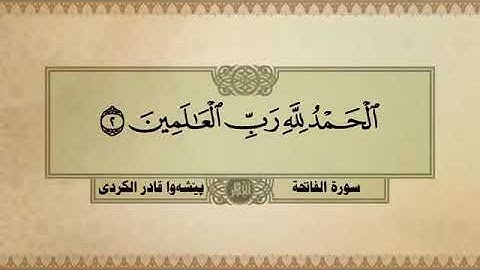 ٱلْحَمْدُ لِلَّهِ رَبِّ ٱلْعَٰلَمِينَ ٢
سورة الفاتحة
بيشەوا قادر الكردي